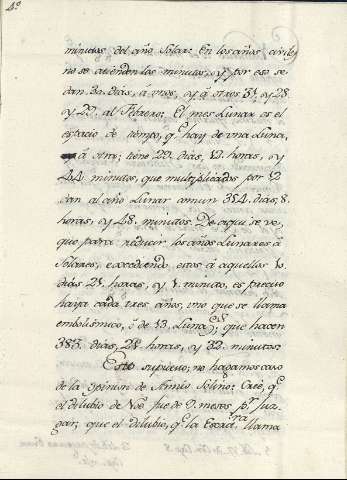 4º
minutos del año Solar: En los años civiles
no se atienden los minutos, y por eso se
dan 30 dias, á unos, y á otros 31, y 28
y 29. al Febrero: El mes Lunar es el
espacio de tiempo, qᵉ hay de una Luna,
á otra; tiene 29. dias, 12. horas, y
44. minutos, que multiplicados por 12
dan al año Lunar comun 354. dias, 8.
horas, y 48. minutos. De aqui se ve,
que para reducir los años Lunares á
Solares, excediendo estos á aquellos 10
dias 21. horas, y 1. minuto, es preciso
haya cada tres años, uno que se llama
embolismico, ó de 13. Lunas, que hacen
383. dias, 21. horas, y 32. minutos.
Esto supuesto; no hagamos caso
de la opinion de Solino: Creé, qᵉ
el dilubio de Noé fue de 9. meses pʳ
que el dilubio, qᵉ la Escraʳᵃ llama